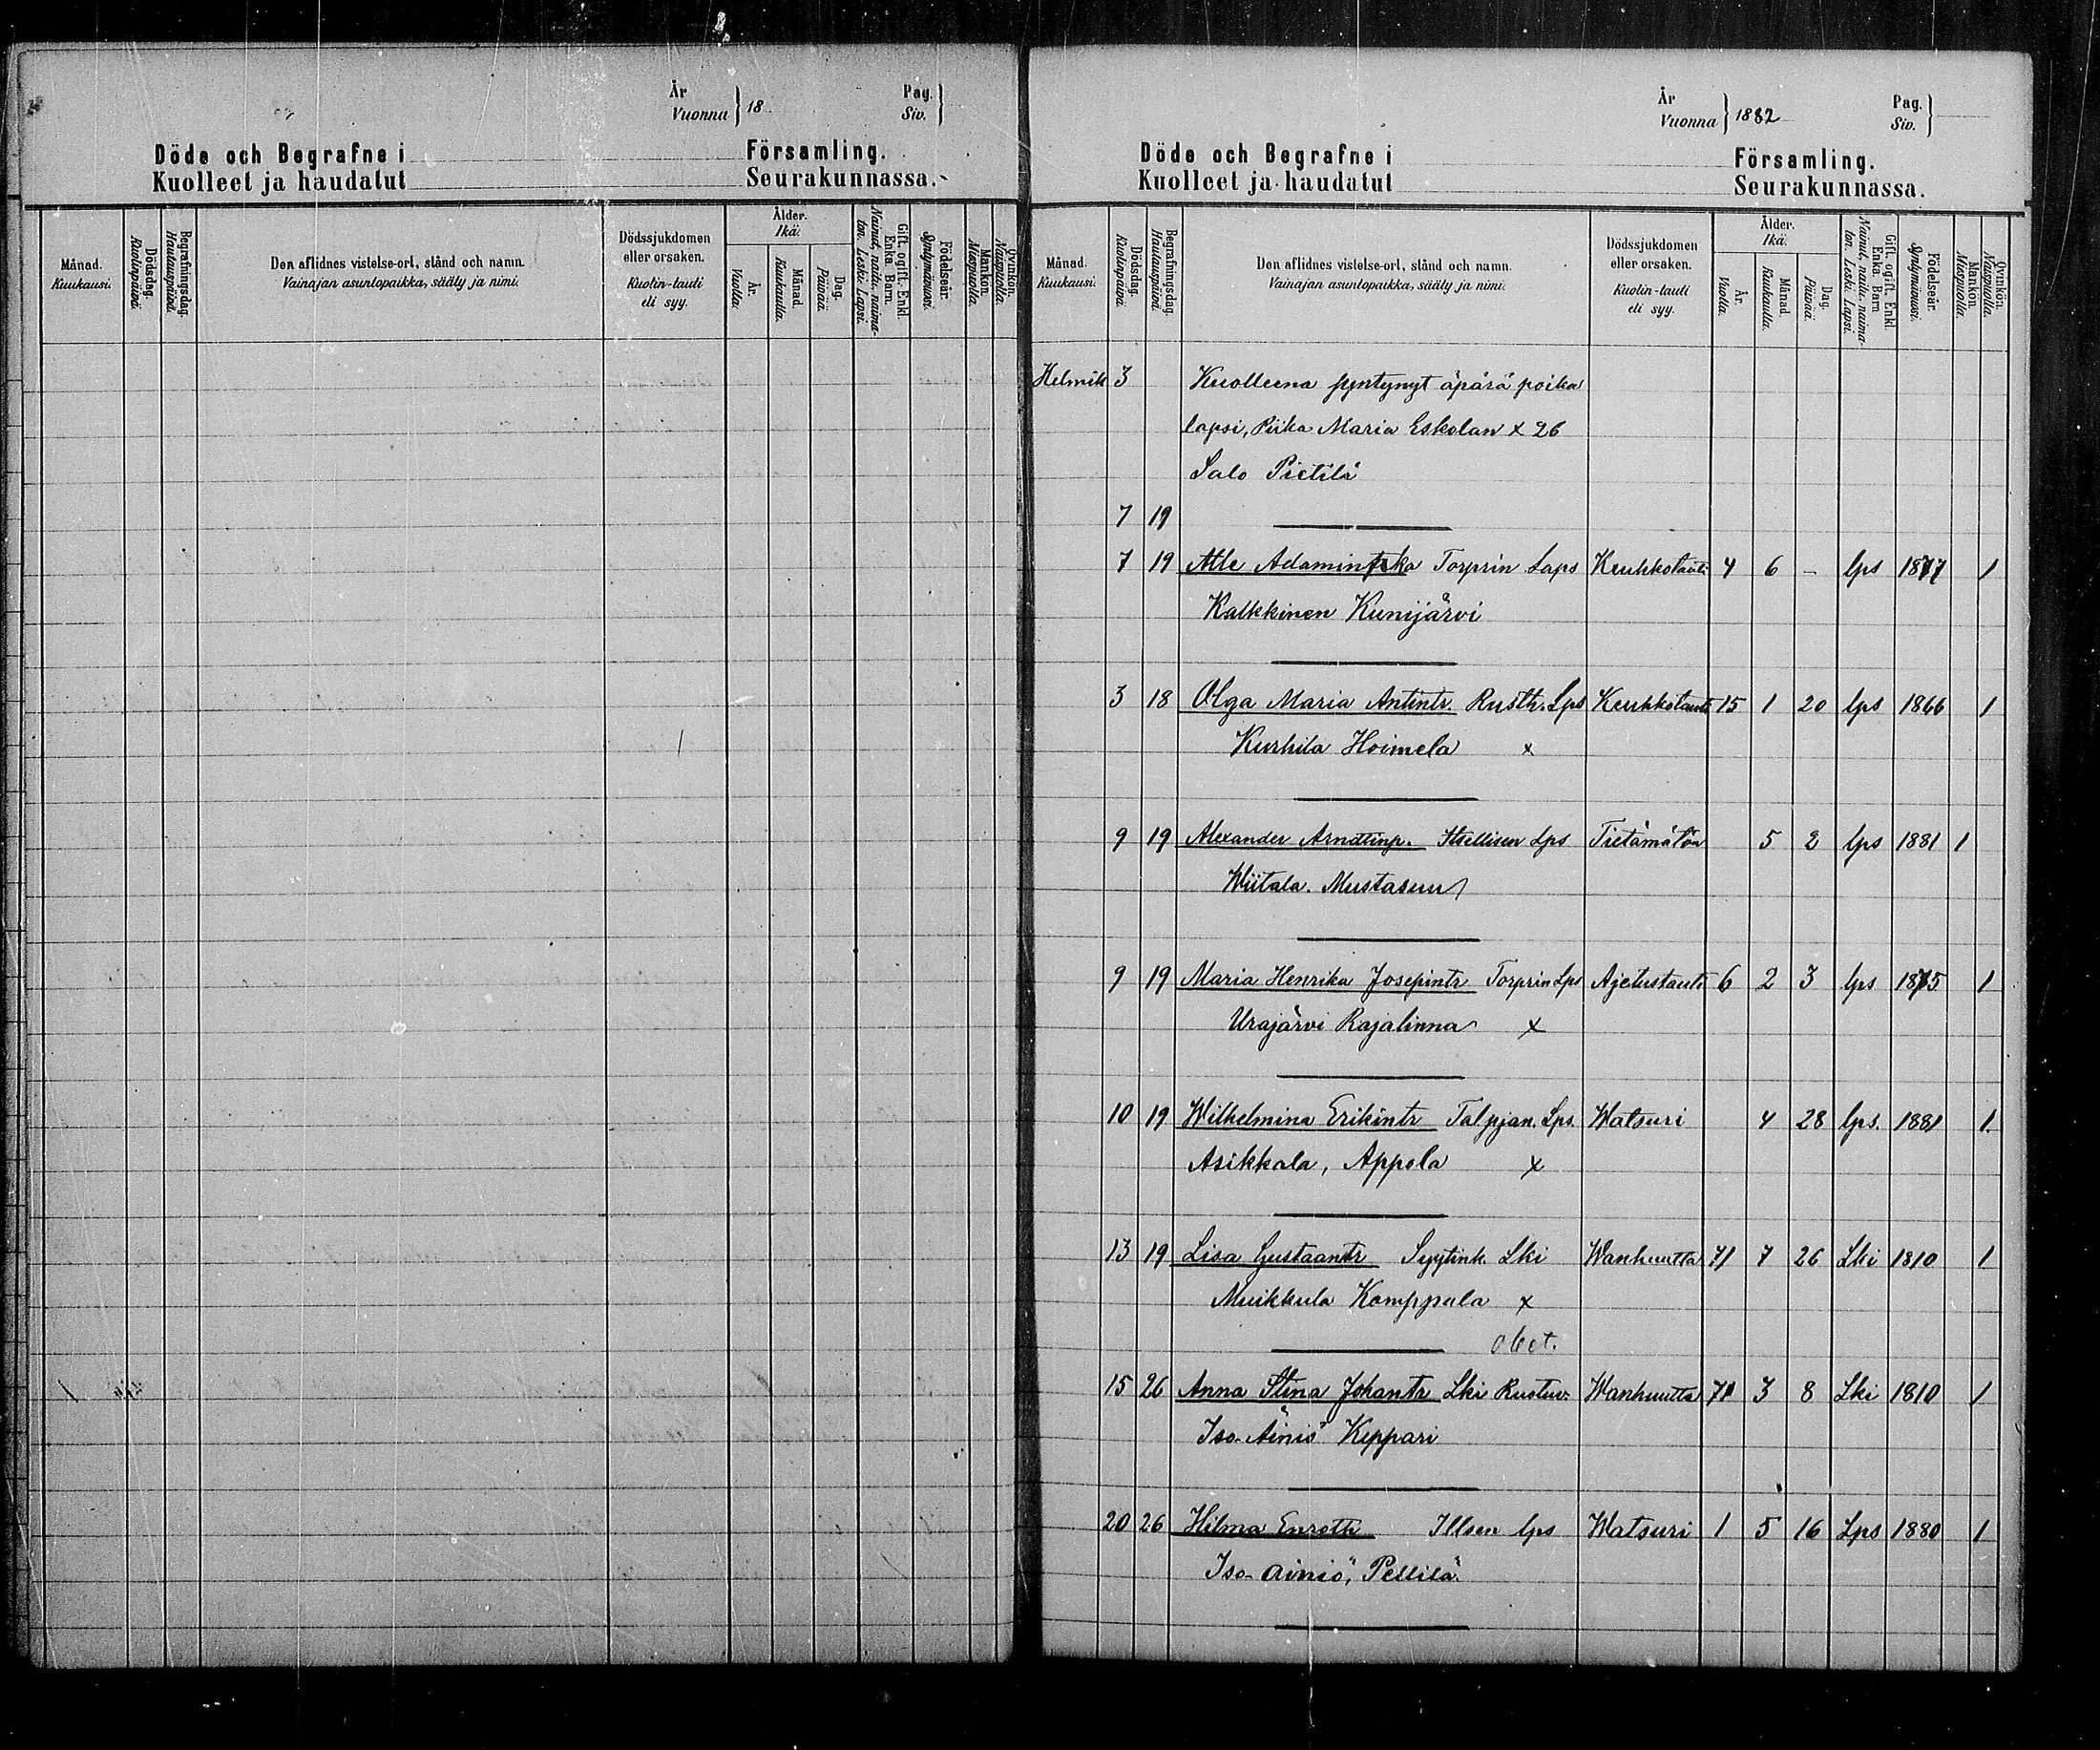 År
Vuonna } 18
Pag.
Siv. }
Döde och Begrafne i Församling.
Kuolleet ja haudatut Seurakunnassa.
Månad. Kuukausi.
Dödsdag. Kuolinpäivä.
Begrafningsdag. Hautauspäivä.
Den aflidnes vistelse-ort, stånd och namn.
Vainajan asuntopaikka, sääty ja nimi.
Dödssjukdomen eller orsaken.
Kuolin-tauti eli syy.
Ålder. Ikä.
År. Vuotta.
Månad. Kuukautta.
Dag. Päivää.
Gift, ogift. Enkl. Enka. Barn.
Nainut, naitu, naimaton. Leski. Lapsi.
Födelseår. Syntymävuosi.
Mankön. Miespuolia.
Qvinkön. Naispuolia.
År
Vuonna } 1882
Pag.
Siv. }
Döde och Begrafne i Församling.
Kuolleet ja haudatut Seurakunnassa.
Månad. Kuukausi.
Dödsdag. Kuolinpäivä.
Begrafningsdag. Hautauspäivä.
Den aflidnes vistelse-ort, stånd och namn.
Vainajan asuntopaikka, sääty ja nimi.
Dödssjukdomen eller orsaken.
Kuolin-tauti eli syy.
Ålder. Ikä.
År. Vuotta.
Månad. Kuukautta.
Dag. Päivää.
Gift, ogift. Enkl. Enka. Barn
Nainut, naitu, naimaton. Leski. Lapsi.
Födelseår. Syntymävuosi.
Mankön. Miespuolia.
Qvinkön. Naispuolia.
Helmik 3 Kuolleena syntynyt äpärä poika
lapsi, Piika Maria Eskolan x 26
Salo Pietilä
7 19
7 19 Adamin Torprin Laps Keuhkotauti 4 6 - lps 1877 1
Kalkkinen Kunijärvi
3 18 Olga Maria Antintr. Rusth. Lps Keuhkotauti 15 1 20 lps 1866 1
Kurhila Hoimela x
9 19 Alexander Itsellisen Lps Tietämätön 5 2 lps 1881 1
Wiitala. Mustasuu
9 19 Maria Henrika Josepintr Torprin Lps Ajetustauti 6 2 3 lps 1875 1
Urajärvi Rajalinna x
10 19 Wilhelmina Erikintr Talpjan. Lps. Watsuri 4 28 lps. 1881 1
Asikkala, Appola x
13 19 Lisa Gustaantr Syytink. Lki Wanhuutta 71 7 26 Lki 1810 1
Muikkula Komppula x
15 26 Anna Stina Johantr Lki Rustuv. Wanhuutta 71 3 8 Lki 1810 1
Iso-Äiniö Keppari
20 26 Hilma Enroth Itlsen lps Watsuri 1 5 16 Lps 1880 1
Iso-Äiniö, Pellilä